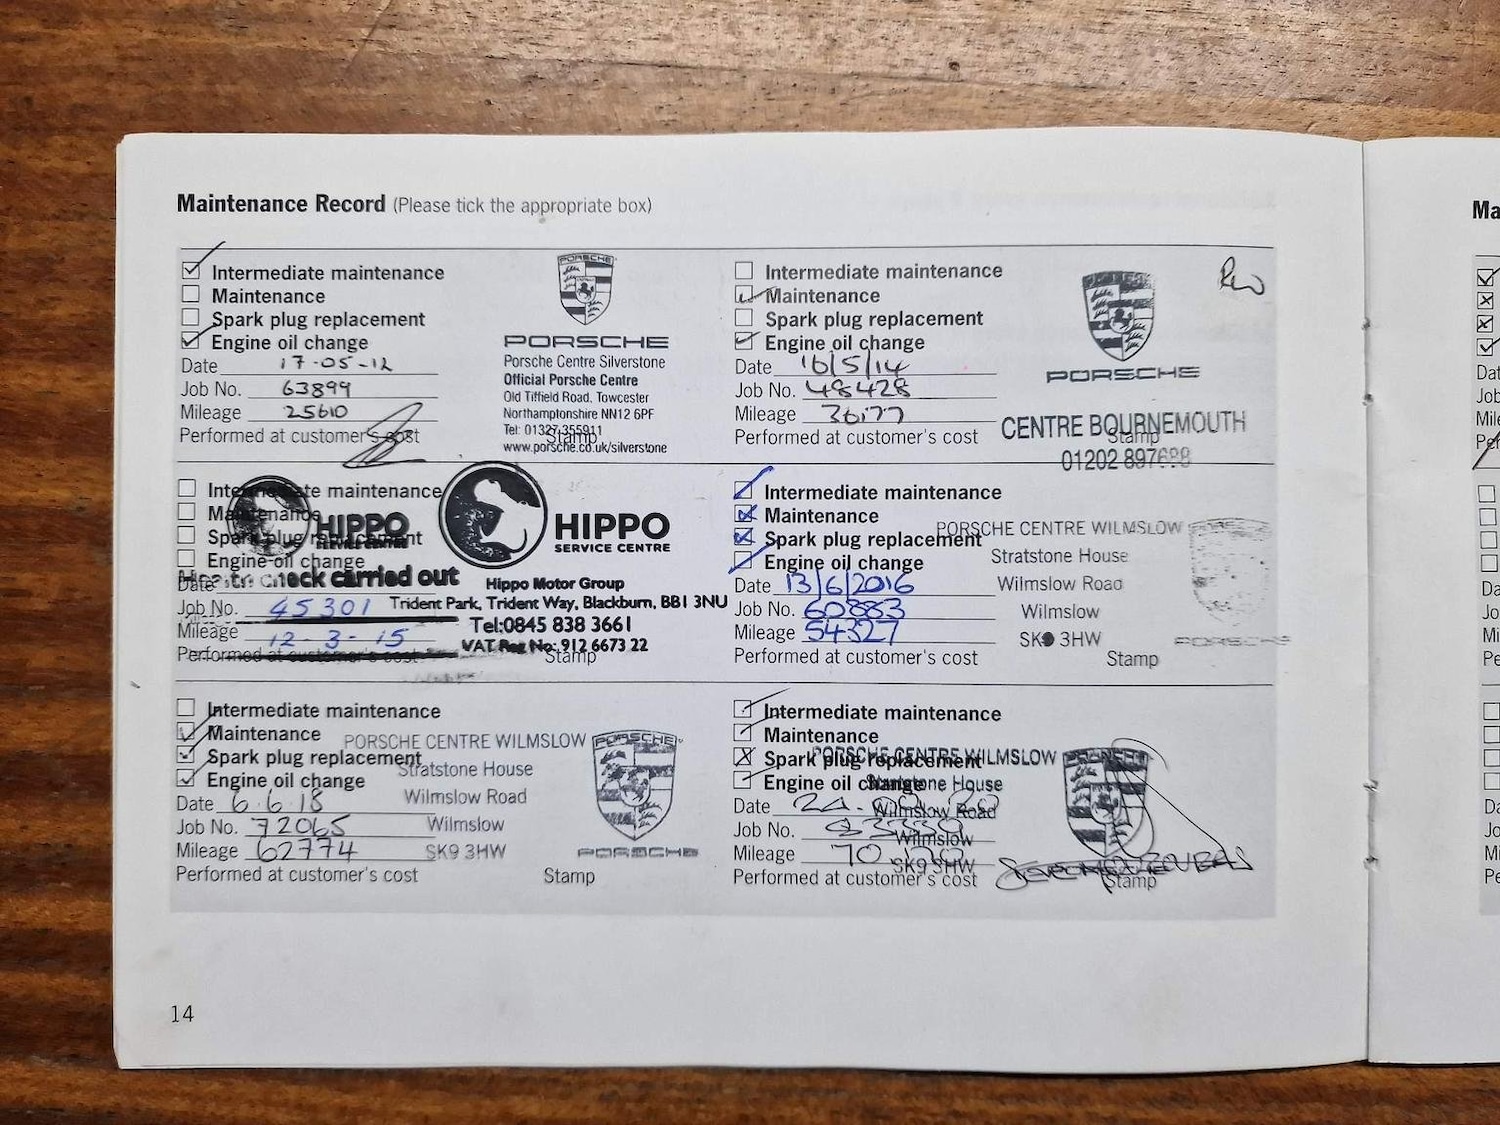 Maintenance Record (Please tick the appropriate box)
Intermediate maintenance
Maintenance
Spark plug replacement
Engine oil change
Date 17-05-12
Job No. 63899
Mileage 25610
Performed at customer's cost
PORSCHE
PORSCHE
Porsche Centre Silverstone
Official Porsche Centre
Old Tiffield Road, Towcester
Northamptonshire NN12 6PF
Tel: 01327 355911
Stamp
www.porsche.co.uk/silverstone
Intermediate maintenance
Maintenance
Spark plug replacement
Engine oil change
Date 16/5/14
Job No. 48428
Mileage 36177
Performed at customer's cost
PORSCHE
CENTRE BOURNEMOUTH
Stamp
01202 897688
Intermediate maintenance
Maintenance
Spark plug replacement
Engine oil change
Date
Job No. 45301
Mileage 12-3-15
Performed at customer's cost
HIPPO
SERVICE CENTRE
check carried out
HIPPO
SERVICE CENTRE
Hippo Motor Group
Trident Park, Trident Way, Blackburn, BB1 3NU
Tel:0845 838 3661
VAT Reg No: 912 6673 22
Stamp
Intermediate maintenance
Maintenance
Spark plug replacement
Engine oil change
Date 13/6/2016
Job No. 60883
Mileage 54327
Performed at customer's cost
PORSCHE CENTRE WILMSLOW
Stratstone House
Wilmslow Road
Wilmslow
SK9 3HW
PORSCHE
Stamp
Intermediate maintenance
Maintenance
Spark plug replacement
Engine oil change
Date 6.6.18
Job No. 72065
Mileage 62774
Performed at customer's cost
PORSCHE CENTRE WILMSLOW
Stratstone House
Wilmslow Road
Wilmslow
SK9 3HW
PORSCHE
PORSCHE
Stamp
Intermediate maintenance
Maintenance
Spark plug replacement
Engine oil change
Date
Job No.
Mileage
Performed at customer's cost
PORSCHE CENTRE WILMSLOW
Stratstone House
Wilmslow Road
Wilmslow
SK9 3HW
Stamp
14